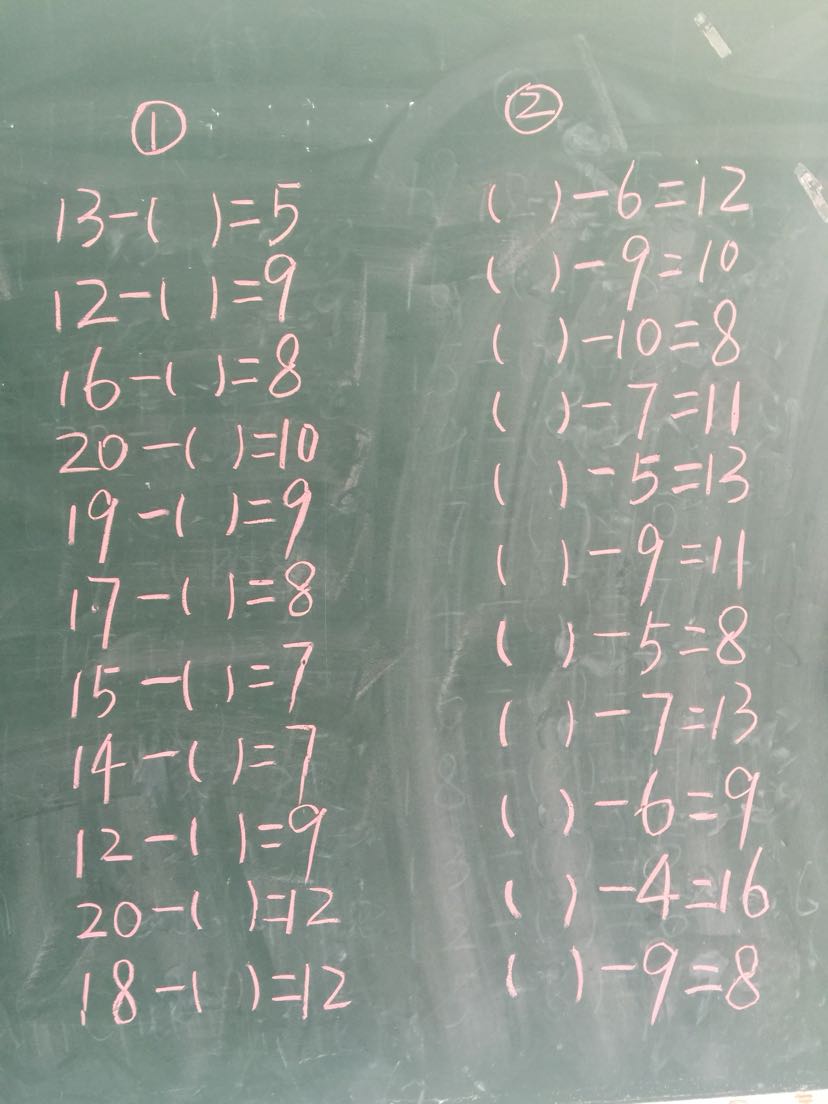 ①
13-( )=5
12-( )=9
16-( )=8
20-( )=10
19-( )=9
17-( )=8
15-( )=7
14-( )=7
12-( )=9
20-( )=12
18-( )=12
②
( )-6=12
( )-9=10
( )-10=8
( )-7=11
( )-5=13
( )-9=11
( )-5=8
( )-7=13
( )-6=9
( )-4=16
( )-9=8